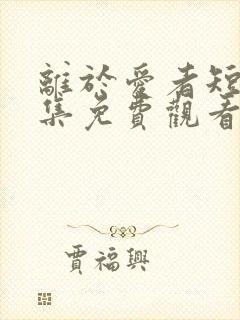 離於愛者短
集免費觀看
賈福興